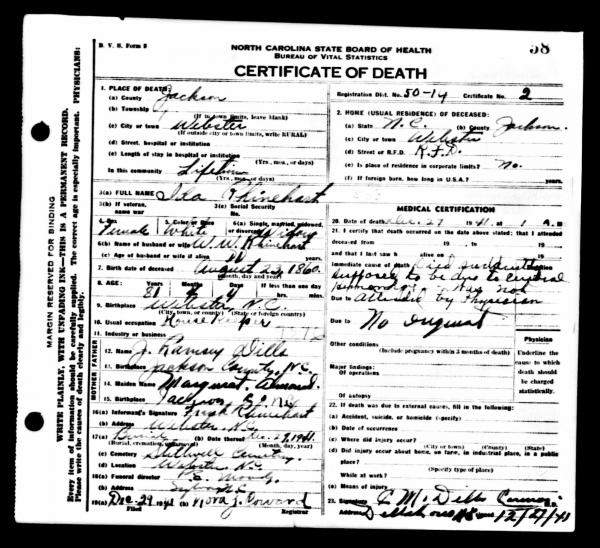 D. V. S. Form 8
NORTH CAROLINA STATE BOARD OF HEALTH
BUREAU OF VITAL STATISTICS
58
CERTIFICATE OF DEATH
Registration Dist. No. 50-14 Certificate No. 2
MARGIN RESERVED FOR BINDING
WRITE PLAINLY, WITH UNFADING INK—THIS IS A PERMANENT RECORD.
Every item of information should be carefully supplied. The correct age is especially important. PHYSICIANS:
Please write the causes of death clearly and legibly.
1. PLACE OF DEATH:
(a) County Jackson
(b) Township
(If in town limits, leave blank)
(c) City or town Webster
(If outside city or town limits, write RURAL)
(d) Street, hospital or institution
(e) Length of stay in hospital or institution
(Yrs., mos., or days)
In this community Lifetime
(Yrs., mos. or days)
2. HOME (USUAL RESIDENCE) OF DECEASED:
(a) State N.C. (b) County Jackson
(c) City or town Webster
(d) Street or R.F.D. R.F.D.
(e) Is place of residence in corporate limits? No.
(f) If foreign born, how long in U.S.A. years
3(a) FULL NAME Ida Rhinehart
3(b) If veteran, name war
3(c) Social Security No.
4. Sex Female
5. Color or Race White
6(a) Single, married, widowed, or divorced Widow
6(b) Name of husband or wife W.W. Rhinehart
6(c) Age of husband or wife if alive years
7. Birth date of deceased August 23, 1860
(Month, day and year)
8. AGE: 81 4 4 If less than one day
hrs. mins.
9. Birthplace Webster, N.C.
(City, town, or county) (State or foreign country)
10. Usual occupation House Keeper
11. Industry or business
MOTHER FATHER
12. Name J. Ramsey Dills
13. Birthplace Jackson County, N.C.
14. Maiden Name Margaret
15. Birthplace Jackson
16(a) Informant's Signature Rhinehart
(b) Address Webster, N.C.
17(a) Burial (b) Date thereof Dec. 29, 1941
(Burial, cremation, or removal) (Month, day, year)
(c) Cemetery Stillwell Cemetery
(d) Location Webster, N.C.
18(a) Funeral director Moody
(b) Address Sylva
19(a) Dec-29 1941 (b) Nora J. Coward
Filed Registrar
MEDICAL CERTIFICATION
20. Date of death Dec. 27 1941 at 1 A.M.
21. I certify that death occurred on the date above stated; that I attended
deceased from 19 to 19
and that I last saw h alive on 19
Immediate cause of death Died suddenly
supposed to be due to Cerebral
hemorrhage Was not
Due to Attended by Physician
Due to No Inquest
Other conditions
(Include pregnancy within 3 months of death)
Major findings:
Of operations
Of autopsy
Physician
Underline the cause to which death should be charged statistically.
22. If death was due to external causes, fill in the following:
(a) Accident, suicide, or homicide (specify)
(b) Date of occurrence
(c) Where did injury occur?
(City or town) (County) (State)
(d) Did injury occur about home, on farm, in industrial place, in a public place?
(Specify type of place)
While at work?
(e) Means of injury
23. Signature C. M. Dills Coroner
Address Dillsboro N.C. 12/27/41